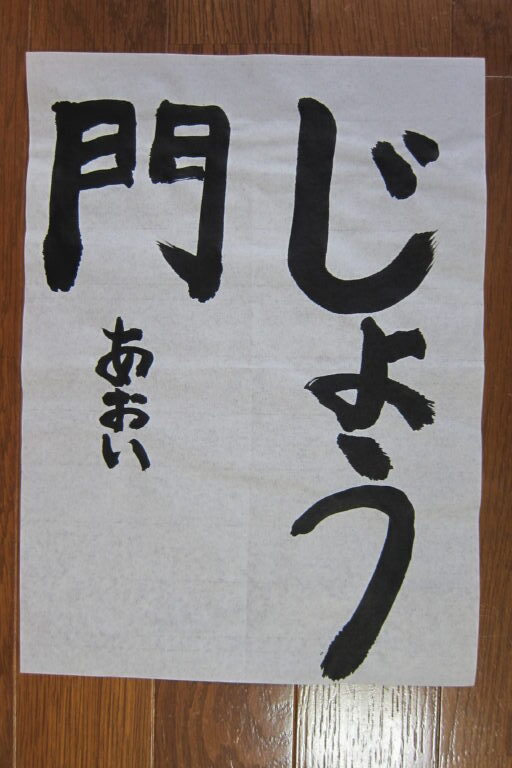 じょう
門
あおい